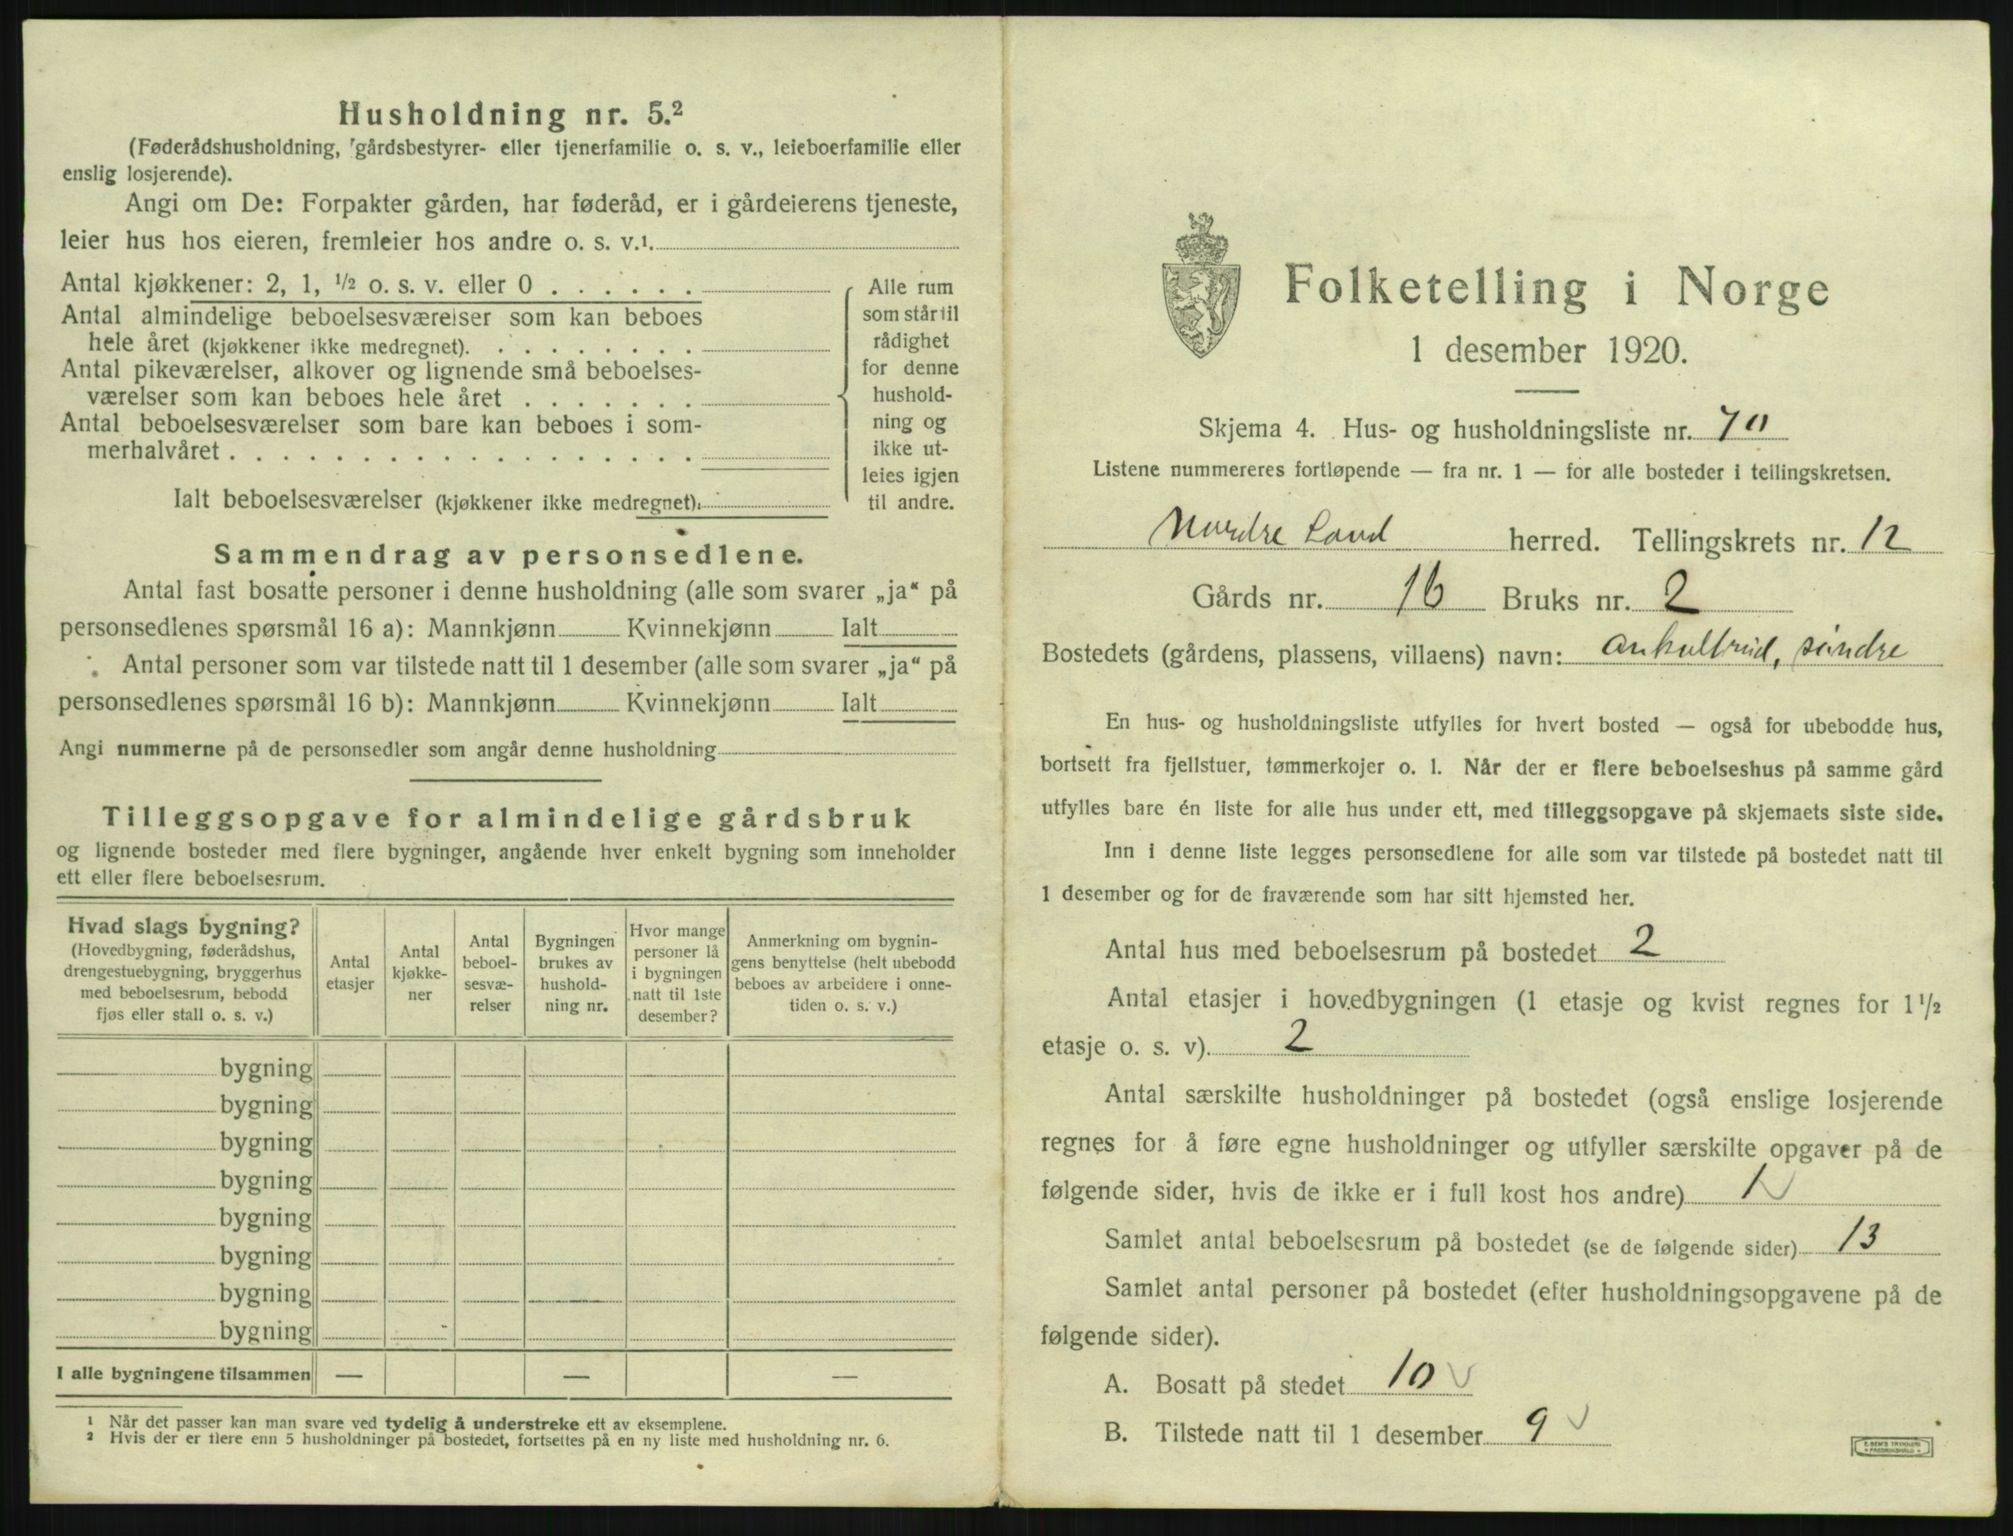 Husholdning nr. 5.²
(Føderådshusholdning, gårdsbestyrer- eller tjenerfamilie o. s. v., leieboerfamilie eller
enslig losjerende).
Angi om De: Forpakter gården, har føderåd, er i gårdeierens tjeneste,
leier hus hos eieren, fremleier hos andre o. s. v.¹
Antal kjøkkener: 2, 1, ½ o. s. v. eller 0 . . . . . .
Antal almindelige beboelsesværelser som kan beboes
hele året (kjøkkener ikke medregnet). . . . . . . . .
Antal pikeværelser, alkover og lignende små beboelses-
værelser som kan beboes hele året . . . . . . .
Antal beboelsesværelser som bare kan beboes i som-
merhalvåret . . . . . . . . . . . . . . . . . .
Ialt beboelsesværelser (kjøkkener ikke medregnet):
Alle rum
som står til
rådighet
for denne
hushold-
ning og
ikke ut-
leies igjen
til andre.
Sammendrag av personsedlene.
Antal fast bosatte personer i denne husholdning (alle som svarer „ja“ på
personsedlenes spørsmål 16 a): Mannkjønn Kvinnekjønn Ialt
Antal personer som var tilstede natt til 1 desember (alle som svarer „ja“ på
personsedlenes spørsmål 16 b): Mannkjønn Kvinnekjønn Ialt
Angi nummerne på de personsedler som angår denne husholdning
Tilleggsopgave for almindelige gårdsbruk
og lignende bosteder med flere bygninger, angående hver enkelt bygning som inneholder
ett eller flere beboelsesrum.
Hvad slags bygning?
(Hovedbygning, føderådshus,
drengestuebygning, bryggerhus
med beboelsesrum, bebodd
fjøs eller stall o. s. v.)
Antal
etasjer
Antal
kjøkke-
ner
Antal
beboel-
sesvæ-
relser
Bygningen
brukes av
hushold-
ning nr.
Hvor mange
personer lå
i bygningen
natt til 1ste
desember?
Anmerkning om bygnin-
gens benyttelse (helt ubebodd
beboes av arbeidere i onne-
tiden o. s. v.)
bygning
bygning
bygning
bygning
bygning
bygning
bygning
bygning
I alle bygningene tilsammen — — —
¹ Når det passer kan man svare ved tydelig å understreke ett av eksemplene.
² Hvis der er flere enn 5 husholdninger på bostedet, fortsettes på en ny liste med husholdning nr. 6.
Folketelling i Norge
1 desember 1920.
Skjema 4. Hus- og husholdningsliste nr. 70
Listene nummereres fortløpende — fra nr. 1 — for alle bosteder i tellingskretsen.
Nordre Land herred. Tellingskrets nr. 12
Gårds nr. 16 Bruks nr. 2
Bostedets (gårdens, plassens, villaens) navn: søndre
En hus- og husholdningsliste utfylles for hvert bosted — også for ubebodde hus,
bortsett fra fjellstuer, tømmerkojer o. l. Når der er flere beboelseshus på samme gård
utfylles bare én liste for alle hus under ett, med tilleggsopgave på skjemaets siste side.
Inn i denne liste legges personsedlene for alle som var tilstede på bostedet natt til
1 desember og for de fraværende som har sitt hjemsted her.
Antal hus med beboelsesrum på bostedet 2
Antal etasjer i hovedbygningen (1 etasje og kvist regnes for 1 ½
etasje o. s. v). 2
Antal særskilte husholdninger på bostedet (også enslige losjerende
regnes for å føre egne husholdninger og utfyller særskilte opgaver på de
følgende sider, hvis de ikke er i full kost hos andre) 1 ✓
Samlet antal beboelsesrum på bostedet (se de følgende sider) 13
Samlet antal personer på bostedet (efter husholdningsopgavene på de
følgende sider).
A. Bosatt på stedet 10 ✓
B. Tilstede natt til 1 desember 9 ✓